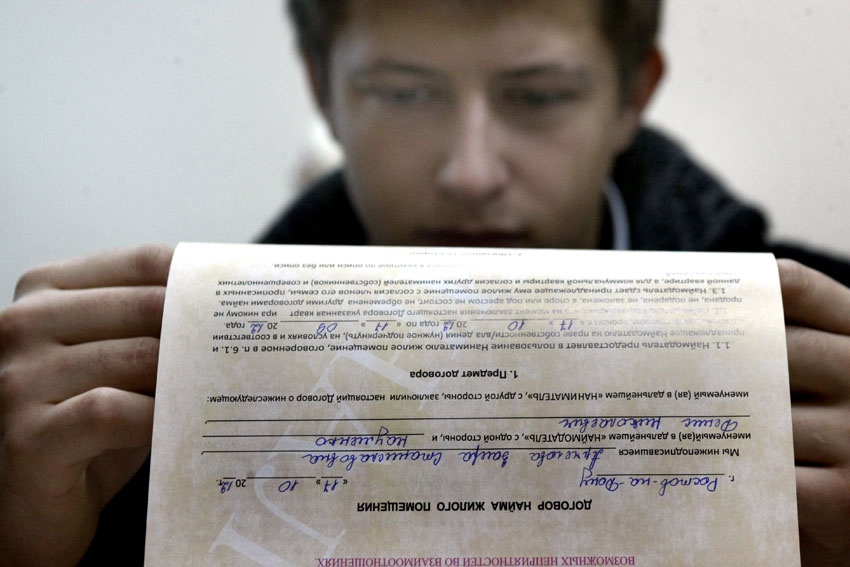 ВОЗМОЖНЫХ НЕПРИЯТНОСТЕЙ ВО ВЗАИМООТНОШЕНИЯХ.
ДОГОВОР НАЙМА ЖИЛОГО ПОМЕЩЕНИЯ
г. Ростов-на-Дону « 17 » 10 20 12 г.
Мы нижеподписавшиеся Заира Станиславовна
именуемый(ая) в дальнейшем «НАЙМОДАТЕЛЬ», с одной стороны, и Науменко
Николаевич
именуемый (ая) в дальнейшем «НАНИМАТЕЛЬ», с другой стороны, заключили настоящий Договор о нижеследующем:
1. Предмет договора
1.1. Наймодатель предоставляет в пользование Нанимателю жилое помещение, оговоренное в п. 6.1. и
принадлежащее Наймодателю на праве собственности/для найма (нужное подчеркнуть), на условиях и в соответствии
« 17 » 10 20 12 года по « 17 » 09 20 12 года.
на момент заключения настоящего Договора указанная никому не
продана, не подарена, не заложена, в споре или под арестом не состоит, не обременена другими договорами найма.
1.3. Наймодатель сдает принадлежащее ему жилое помещение с согласия членов его семьи, прописанных в
данной квартире, а для коммунальной квартиры и согласия других нанимателей (собственников) и совершеннолетних
в квартире по описи или без описи.